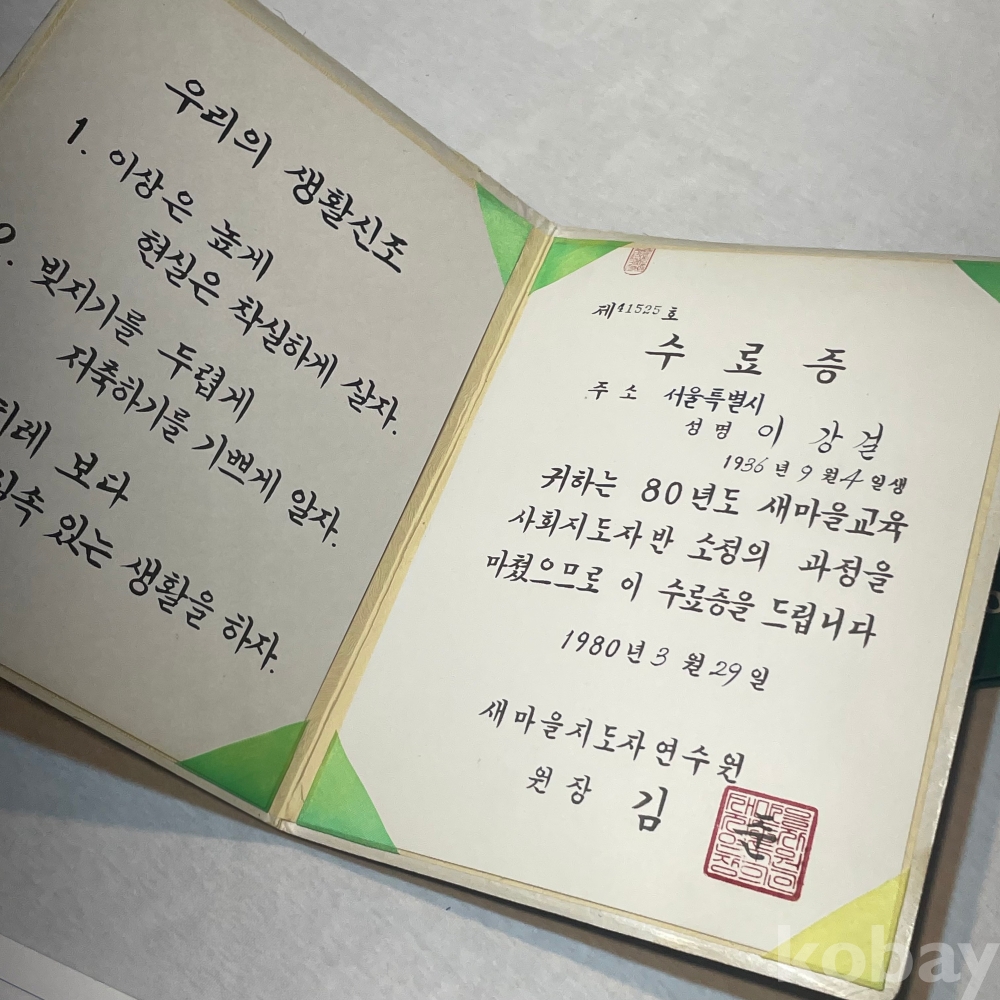 우리의 생활신조
1. 이상은 높게
현실은 착실하게 살자.
2. 빚지기를 두렵게
저축하기를 기쁘게 알자.
보다
있는 생활을 하자.
제41525호
수료증
주소 서울특별시
성명 이강걸
1936년 9월 4일생
귀하는 80년도 새마을교육
사회지도자반 소정의 과정을
마쳤으므로 이 수료증을 드립니다
1980년 3월 29일
새마을지도자연수원
원장 김준
kobay